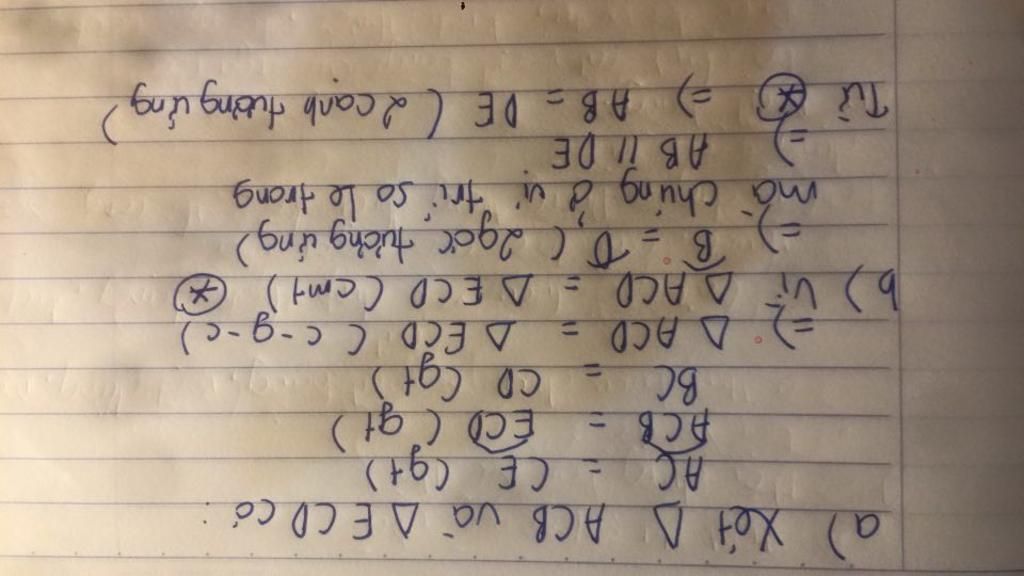 a) Xét Δ ACB và Δ ECD có:
AC = CE (gt)
ACB = ECD (gt)
BC = CD (gt)
=) Δ ACD = Δ ECD (c-g-c)
b) Vì Δ ACD = Δ ECD (cmt) (*)
=) B = D (2góc tương ứng)
mà chúng ở vị trí so le trong
=) AB // DE
Từ (*) =) AB = DE (2cạnh tương ứng)